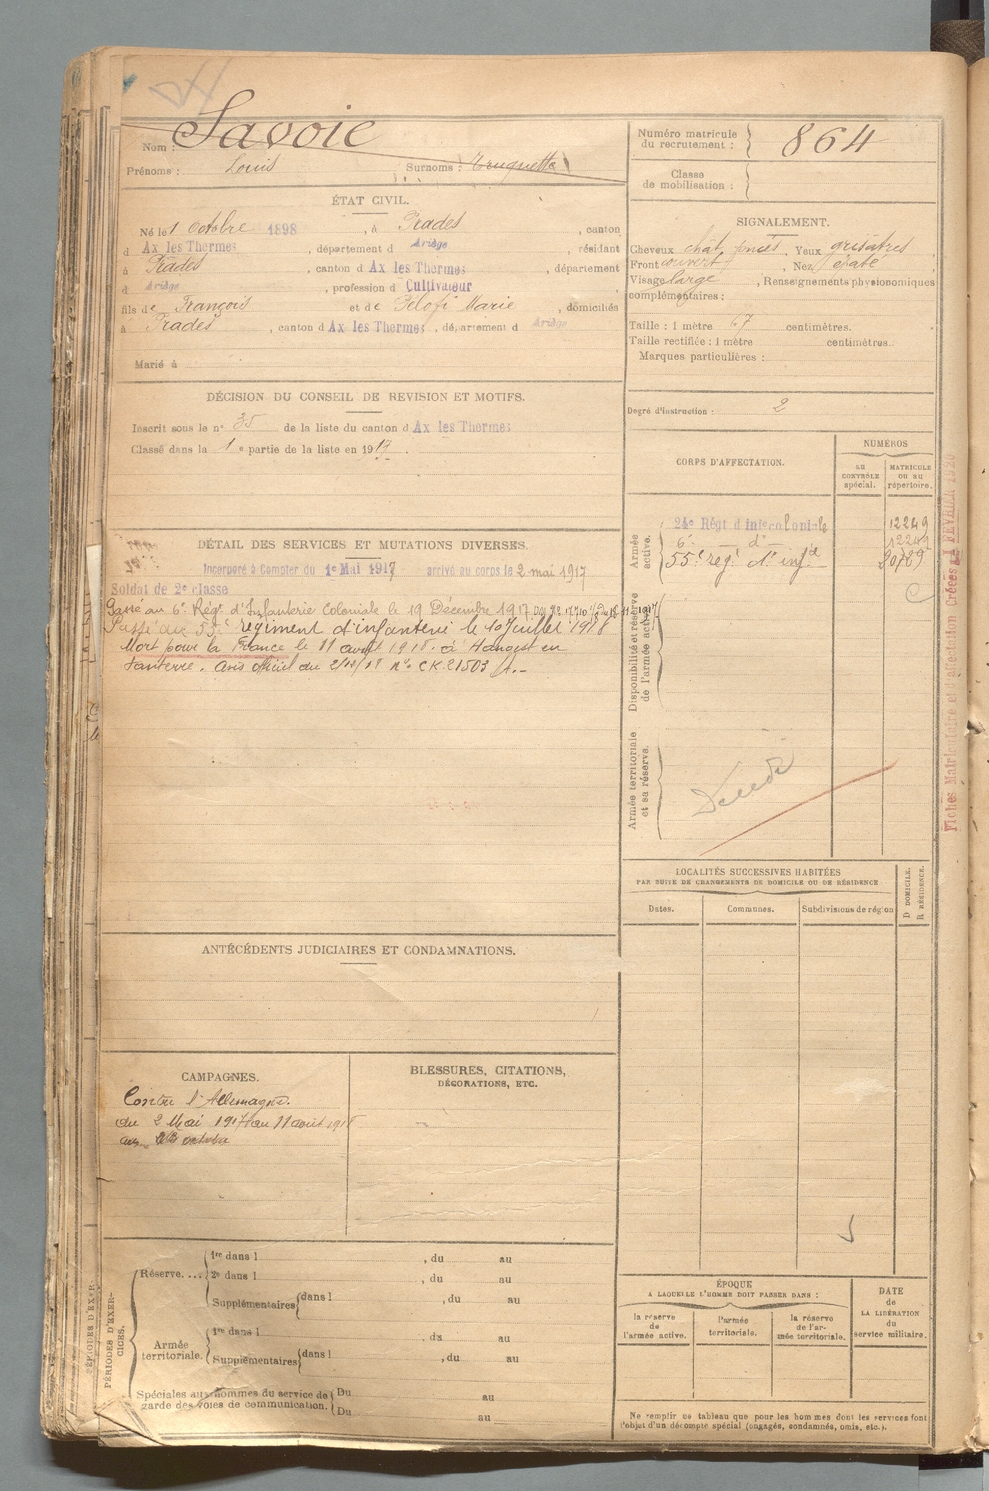 Savoie
Nom :
Prénoms : Louis Surnoms : Truguette
ÉTAT CIVIL.
Né le 1 Octobre 1898, à Prades, canton
d Ax les Thermes, département d Ariège, résidant
à Prades, canton d Ax les Thermes, département
d Ariège, profession d Cultivateur
fils de François et de Pélofi Marie, domiciliés
à Prades, canton d Ax les Thermes, département d Ariège
Marié à
DÉCISION DU CONSEIL DE REVISION ET MOTIFS.
Inscrit sous le n° 35 de la liste du canton d Ax les Thermes
Classé dans la 1e partie de la liste en 1917.
DÉTAIL DES SERVICES ET MUTATIONS DIVERSES.
Incorporé à Compter du 1e Mai 1917 arrivé au corps le 2 mai 1917
Soldat de 2e classe
Passé au 6e Régt d'Infanterie Coloniale le 19 Décembre 1917
Passé au 55e régiment d'infanterie le 10 juillet 1918
Mort pour la France le 11 août 1918 à Hangest en
Santerre. Avis officiel du n° CK 21503
ANTÉCÉDENTS JUDICIAIRES ET CONDAMNATIONS.
CAMPAGNES.
Contre l'Allemagne.
du 2 Mai 1917 au 11 août 1918
BLESSURES, CITATIONS,
DÉCORATIONS, ETC.
PÉRIODES D'EXER-
CICES.
Réserve....
1re dans l , du au
2e dans l , du au
Supplémentaires dans l , du au
Armée
territoriale.
1re dans l , du au
Supplémentaires dans l , du au
Spéciales aux hommes du service de
garde des voies de communication.
Du au
Du au
Numéro matricule
du recrutement : 864
Classe
de mobilisation :
SIGNALEMENT.
Cheveux chât foncés, Yeux grisâtres,
Front couvert, Nez épaté
Visage large, Renseignements physionomiques
complémentaires :
Taille : 1 mètre 67 centimètres.
Taille rectifiée : 1 mètre centimètres.
Marques particulières :
Degré d'instruction : 2
CORPS D'AFFECTATION.
NUMÉROS
AU
CONTRÔLE
spécial.
MATRICULE
OU AU
répertoire.
Armée
active.
24e Régt d'infie coloniale 12249
6e — d° — 12249
55e regt d'infie
Disponibilité et réserve
de l'armée active.
Armée territoriale
et sa réserve.
Décédé
Fiches Matriculaire et d'affectation Créées le FÉVRIER 1920
LOCALITÉS SUCCESSIVES HABITÉES
PAR SUITE DE CHANGEMENTS DE DOMICILE OU DE RÉSIDENCE
Dates.
Communes.
Subdivisions de région
D DOMICILE.
R RÉSIDENCE.
ÉPOQUE
A LAQUELLE L'HOMME DOIT PASSER DANS :
la réserve
de
l'armée active.
l'armée
territoriale.
la réserve
de l'ar-
mée territoriale.
DATE
de
LA LIBÉRATION
du
service militaire.
Ne remplir ce tableau que pour les hommes dont les services font
l'objet d'un décompte spécial (engagés, condamnés, omis, etc.).